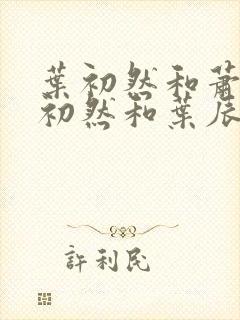 葉初然和蕭
初然和葉辰
許利民